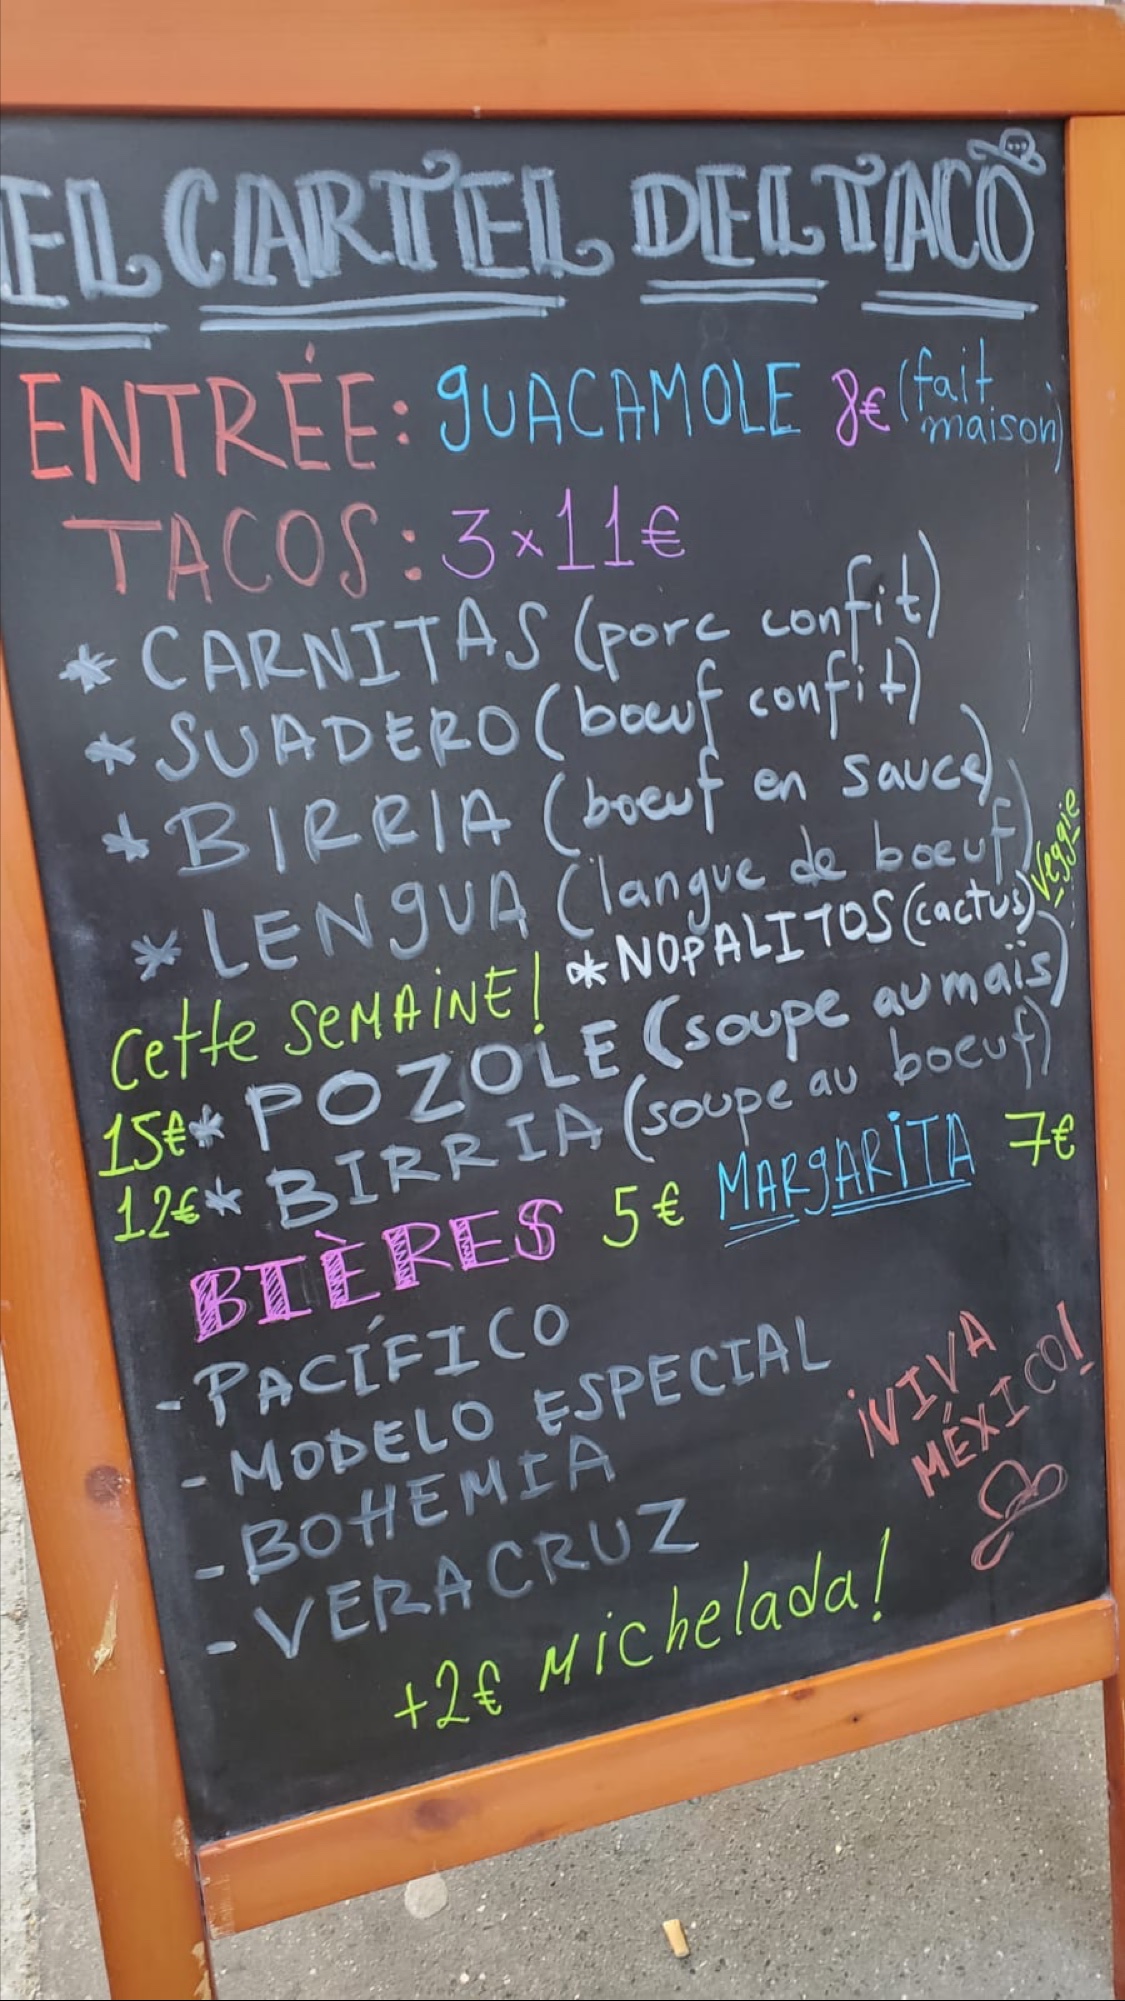 EL CARTEL DEL TACO
ENTRÉE: gUACAMOLE 8€ (fait maison)
TACOS: 3x11€
* CARNITAS (porc confit)
* SUADERO (boeuf confit)
* BIRRIA (boeuf en sauce)
* LENgUA (langue de boeuf)
* NOPALITOS (cactus) Veggie
Cette SEMAiNE!
15€ * POZOLE (soupe au maïs)
12€ * BIRRIA (soupe au boeuf)
BIÈRES 5€ MARgARiTA 7€
- PACÍFICO
- MODELO ESPECIAL
- BOHEMIA
- VERACRUZ
¡VIVA MÉXICO!
+2€ Michelada!